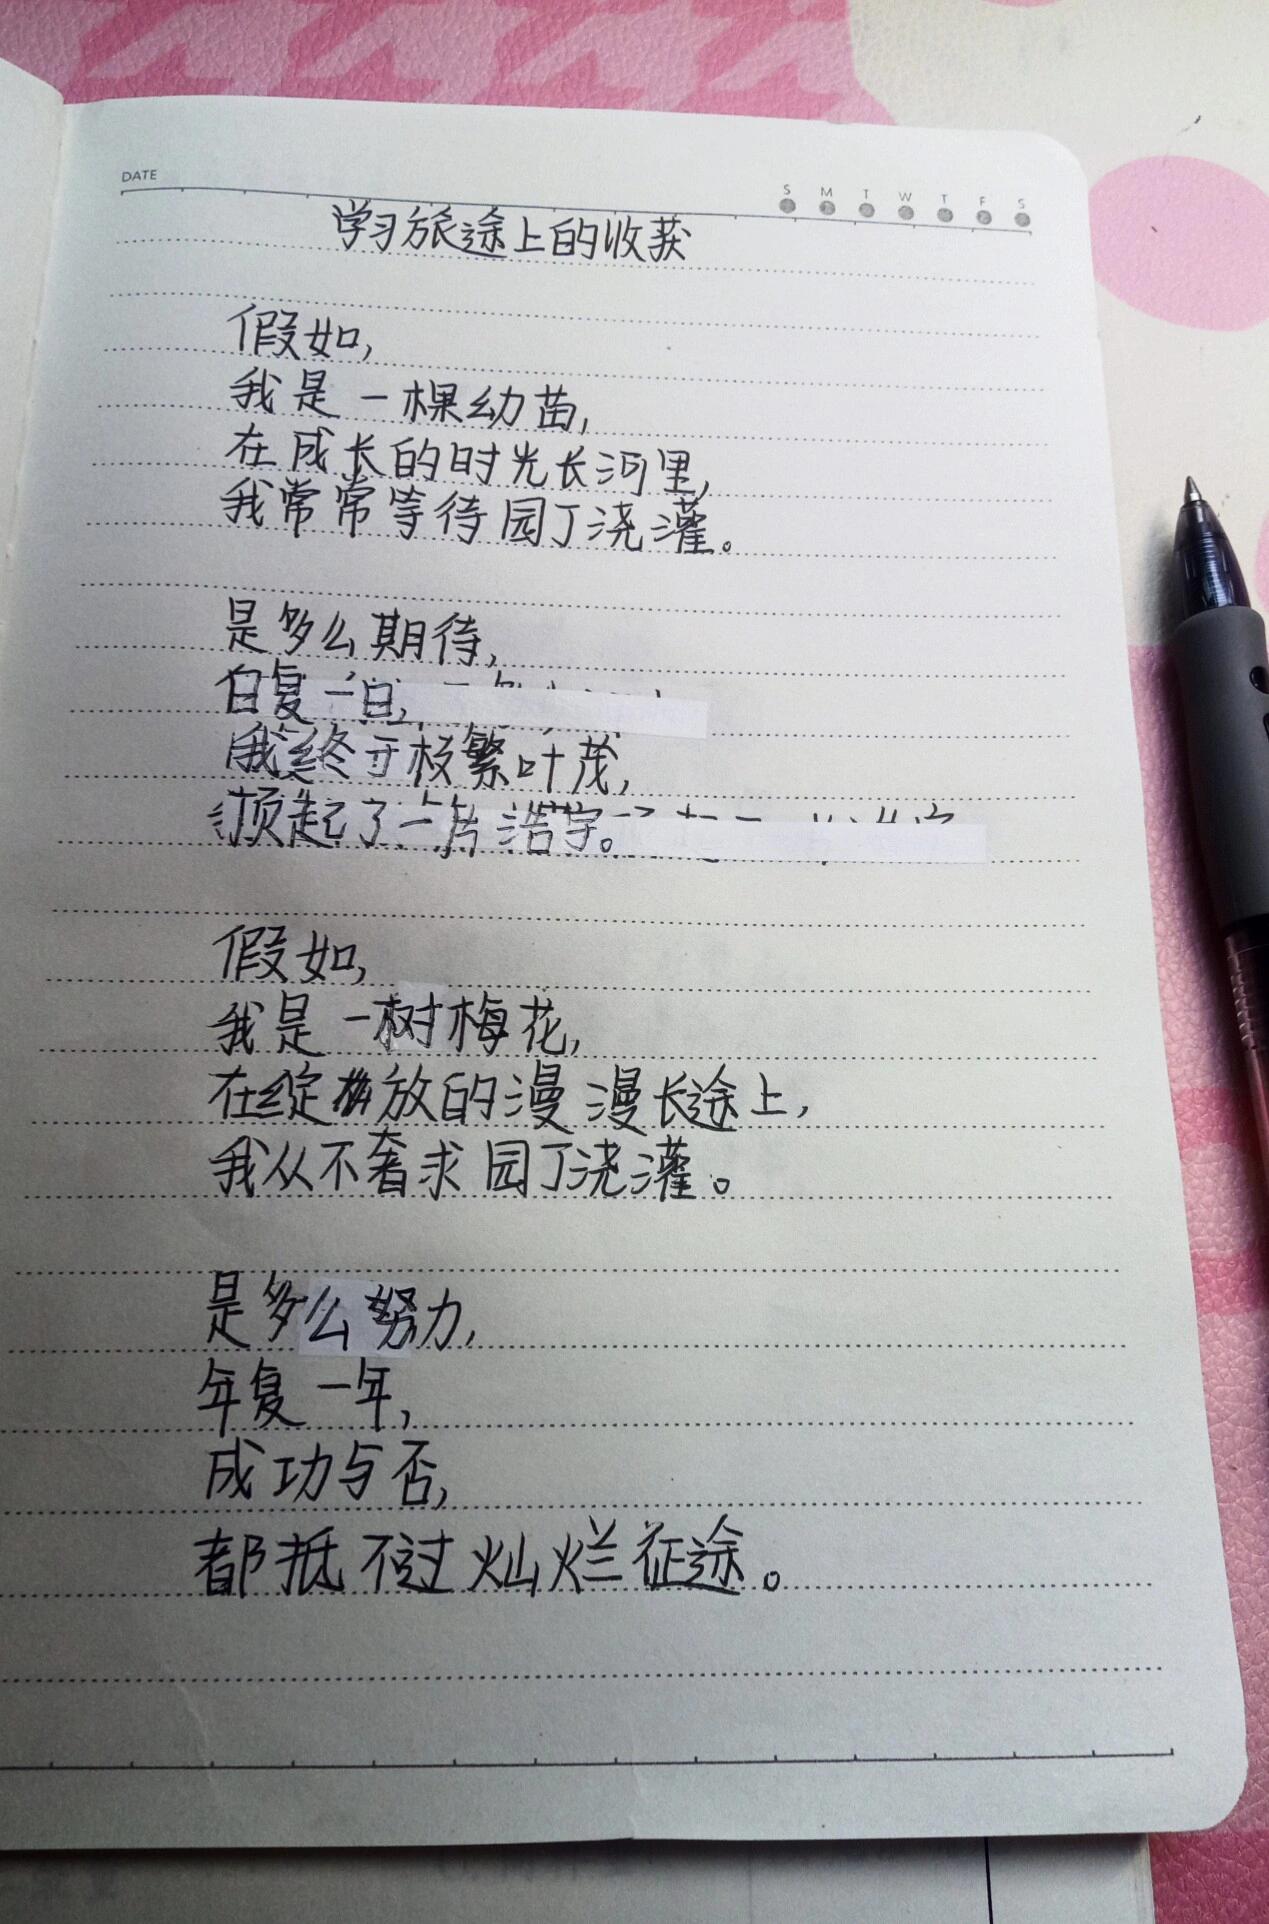 DATE
S M T W T F S
学习旅途上的收获
假如,
我是一棵幼苗,
在成长的时光长河里,
我常常等待园丁浇灌。
是多么期待,
日复一日,
我终于枝繁叶茂,
顶起了一片浩宇。
假如,
我是一树梅花,
在绽放的漫漫长途上,
我从不奢求园丁浇灌。
是多么努力,
年复一年,
成功与否,
都抵不过灿烂征途。